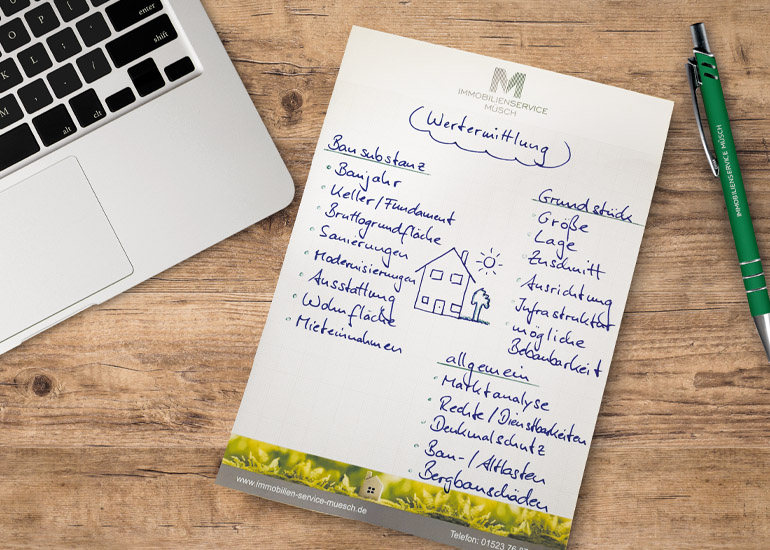 enter
shift
alt
ctrl
alt
K
L
M
M
IMMOBILIENSERVICE
MÜSCH
Wertermittlung
Bausubstanz
Baujahr
Keller/Fundament
Bruttogrundfläche
Sanierungen
Modernisierungen
Ausstattung
Wohnfläche
Mieteinnahmen
Grundstück
Größe
Lage
Zuschnitt
Ausrichtung
Infrastruktur
mögliche
Bebaubarkeit
allgemein
Marktanalyse
Rechte/Dienstbarkeiten
Denkmalschutz
Bau-/Altlasten
Bergbauschäden
www.immobilien-service-muesch.de
Telefon: 01523 76
IMMOBILIENSERVICE MÜSCH